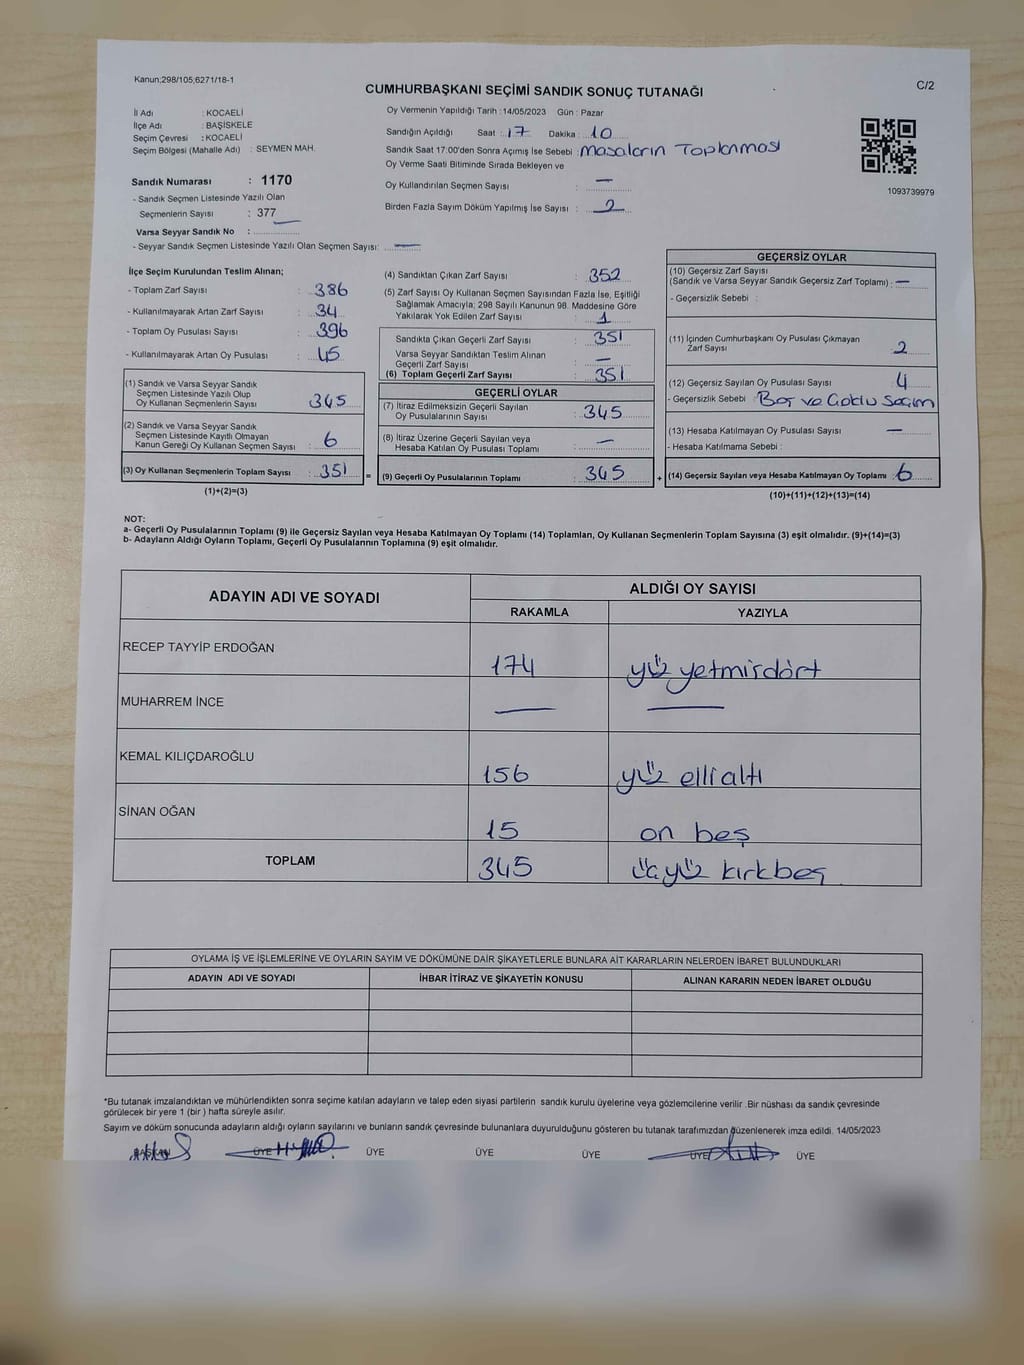 Kanun;298/105;6271/18-1
C/2
CUMHURBAŞKANI SEÇİMİ SANDIK SONUÇ TUTANAĞI
İl Adı : KOCAELİ
İlçe Adı : BAŞİSKELE
Seçim Çevresi : KOCAELİ
Seçim Bölgesi (Mahalle Adı) : SEYMEN MAH.
Sandık Numarası : 1170
- Sandık Seçmen Listesinde Yazılı Olan
Seçmenlerin Sayısı : 377
Varsa Seyyar Sandık No : —
- Seyyar Sandık Seçmen Listesinde Yazılı Olan Seçmen Sayısı: —
Oy Vermenin Yapıldığı Tarih : 14/05/2023 Gün : Pazar
Sandığın Açıldığı Saat : 17 Dakika : 10
Sandık Saat 17:00'den Sonra Açımış İse Sebebi : Masaların Toplanması
Oy Verme Saati Bitiminde Sırada Bekleyen ve
Oy Kullandırılan Seçmen Sayısı : —
Birden Fazla Sayım Döküm Yapılmış İse Sayısı : 2
1093739979
İlçe Seçim Kurulundan Teslim Alınan;
- Toplam Zarf Sayısı : 386
- Kullanılmayarak Artan Zarf Sayısı : 34
- Toplam Oy Pusulası Sayısı : 396
- Kullanılmayarak Artan Oy Pusulası : 45
(1) Sandık ve Varsa Seyyar Sandık
Seçmen Listesinde Yazılı Olup
Oy Kullanan Seçmenlerin Sayısı : 345
(2) Sandık ve Varsa Seyyar Sandık
Seçmen Listesinde Kayıtlı Olmayan
Kanun Gereği Oy Kullanan Seçmen Sayısı : 6
(3) Oy Kullanan Seçmenlerin Toplam Sayısı : 351
(1)+(2)=(3)
(4) Sandıktan Çıkan Zarf Sayısı : 352
(5) Zarf Sayısı Oy Kullanan Seçmen Sayısından Fazla İse, Eşitliği
Sağlamak Amacıyla; 298 Sayılı Kanunun 98. Maddesine Göre
Yakılarak Yok Edilen Zarf Sayısı : 1
Sandıkta Çıkan Geçerli Zarf Sayısı : 351
Varsa Seyyar Sandıktan Teslim Alınan
Geçerli Zarf Sayısı : —
(6) Toplam Geçerli Zarf Sayısı : 351
GEÇERLİ OYLAR
(7) İtiraz Edilmeksizin Geçerli Sayılan
Oy Pusulalarının Sayısı : 345
(8) İtiraz Üzerine Geçerli Sayılan veya
Hesaba Katılan Oy Pusulası Toplamı : —
= (9) Geçerli Oy Pusulalarının Toplamı : 345
GEÇERSİZ OYLAR
(10) Geçersiz Zarf Sayısı
(Sandık ve Varsa Seyyar Sandık Geçersiz Zarf Toplamı) : —
- Geçersizlik Sebebi :
(11) İçinden Cumhurbaşkanı Oy Pusulası Çıkmayan
Zarf Sayısı : 2
(12) Geçersiz Sayılan Oy Pusulası Sayısı : 4
- Geçersizlik Sebebi : Boş ve Çoklu Seçim
(13) Hesaba Katılmayan Oy Pusulası Sayısı : —
- Hesaba Katılmama Sebebi :
+ (14) Geçersiz Sayılan veya Hesaba Katılmayan Oy Toplamı : 6
(10)+(11)+(12)+(13)=(14)
NOT:
a- Geçerli Oy Pusulalarının Toplamı (9) ile Geçersiz Sayılan veya Hesaba Katılmayan Oy Toplamı (14) Toplamları, Oy Kullanan Seçmenlerin Toplam Sayısına (3) eşit olmalıdır. (9)+(14)=(3)
b- Adayların Aldığı Oyların Toplamı, Geçerli Oy Pusulalarının Toplamına (9) eşit olmalıdır.
ADAYIN ADI VE SOYADI ALDIĞI OY SAYISI
RAKAMLA YAZIYLA
RECEP TAYYİP ERDOĞAN 174 yüz yetmişdört
MUHARREM İNCE — —
KEMAL KILIÇDAROĞLU 156 yüz elli altı
SİNAN OĞAN 15 on beş
TOPLAM 345 üçyüz kırkbeş
OYLAMA İŞ VE İŞLEMLERİNE VE OYLARIN SAYIM VE DÖKÜMÜNE DAİR ŞİKAYETLERLE BUNLARA AİT KARARLARIN NELERDEN İBARET BULUNDUKLARI
ADAYIN ADI VE SOYADI İHBAR İTİRAZ VE ŞİKAYETİN KONUSU ALINAN KARARIN NEDEN İBARET OLDUĞU
*Bu tutanak imzalandıktan ve mühürlendikten sonra seçime katılan adayların ve talep eden siyasi partilerin sandık kurulu üyelerine veya gözlemcilerine verilir .Bir nüshası da sandık çevresinde
görülecek bir yere 1 (bir ) hafta süreyle asılır.
Sayım ve döküm sonucunda adayların aldığı oyların sayılarını ve bunların sandık çevresinde bulunanlara duyurulduğunu gösteren bu tutanak tarafımızdan düzenlenerek imza edildi. 14/05/2023
BAŞKAN ÜYE ÜYE ÜYE ÜYE ÜYE ÜYE